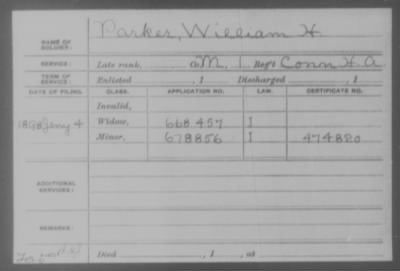 NAME OF SOLDIER: Parker, William H.
SERVICE: Late rank, Co. M, 1 Reg't Conn H. A.
TERM OF SERVICE: Enlisted , 1 Discharged , 1
DATE OF FILING. CLASS. APPLICATION NO. LAW. CERTIFICATE NO.
Invalid,
1898 Jany 4 Widow, 668 457 I
Minor, 678856 I 474820
ADDITIONAL SERVICES:
REMARKS:
Died , 1 , at